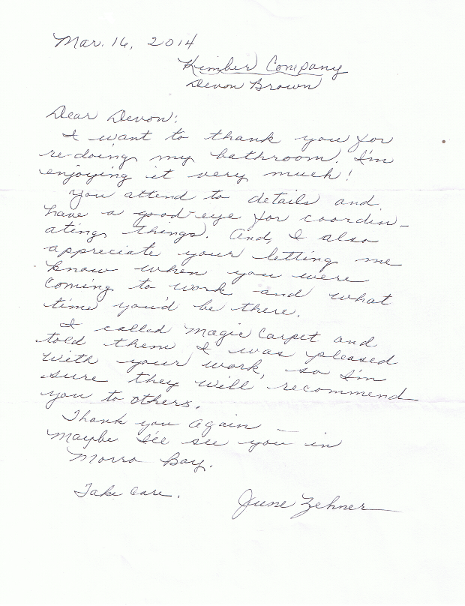 Mar. 16, 2014
Kimber Company
Devon Brown
Dear Devon:
I want to thank you for
re-doing my bathroom! I'm
enjoying it very much!
You attend to details and
have a good eye for coordin-
ating things. And, I also
appreciate your letting me
know when you were
coming to work and what
time you'd be there.
I called Magic Carpet and
told them I was pleased
with your work, so I'm
sure they will recommend
you to others.
Thank you again –
Maybe I'll see you in
Morro Bay.
Take care.
June Zehner